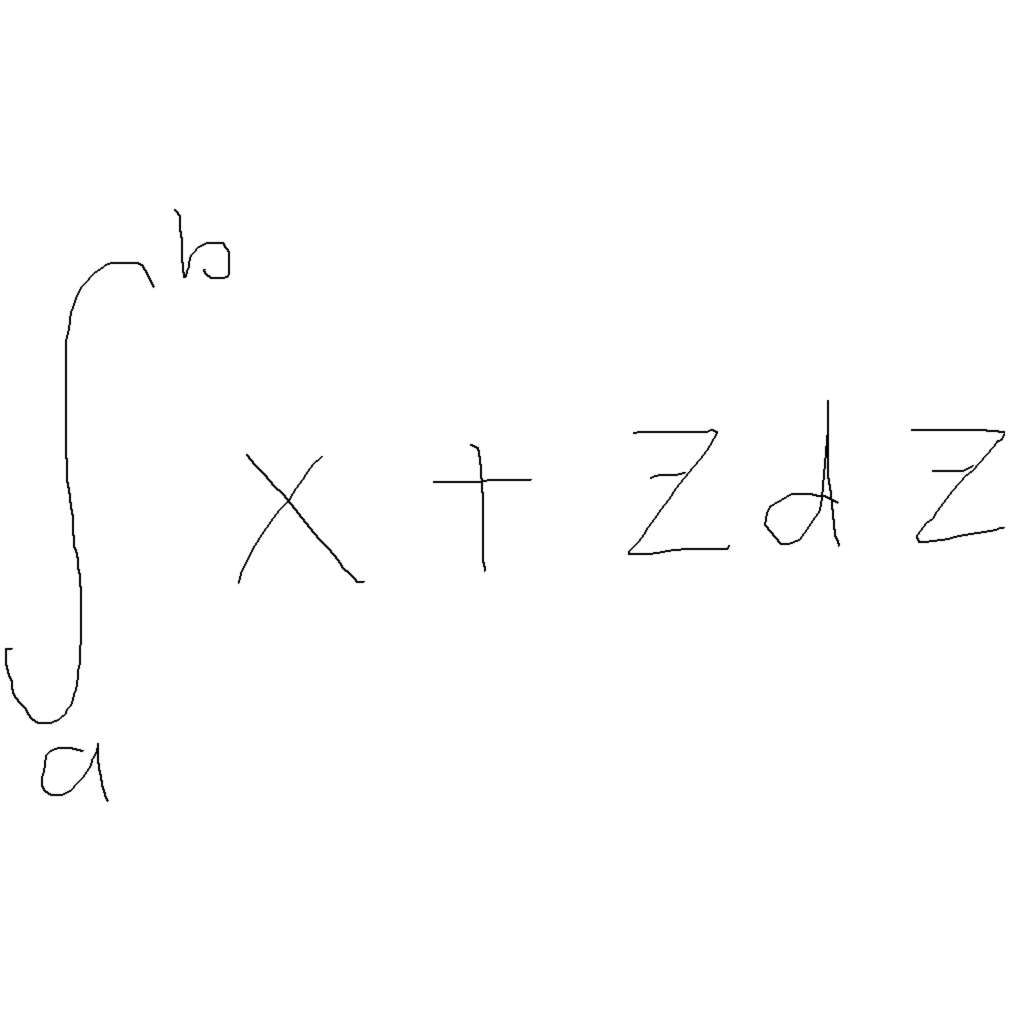 ∫_a^b x + z dz